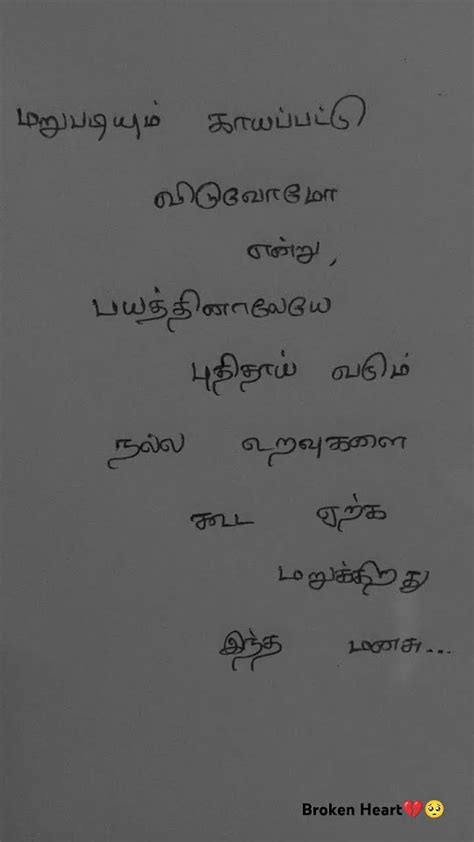 மறுபடியும் காயப்பட்டு
விடுவோமோ
என்று,
பயத்தினாலேயே
புதிதாய் வடும்
நல்ல உறவுகளை
கூட ஏற்க
மறுக்கிறது
இந்த மனசு...
Broken Heart💔🥺